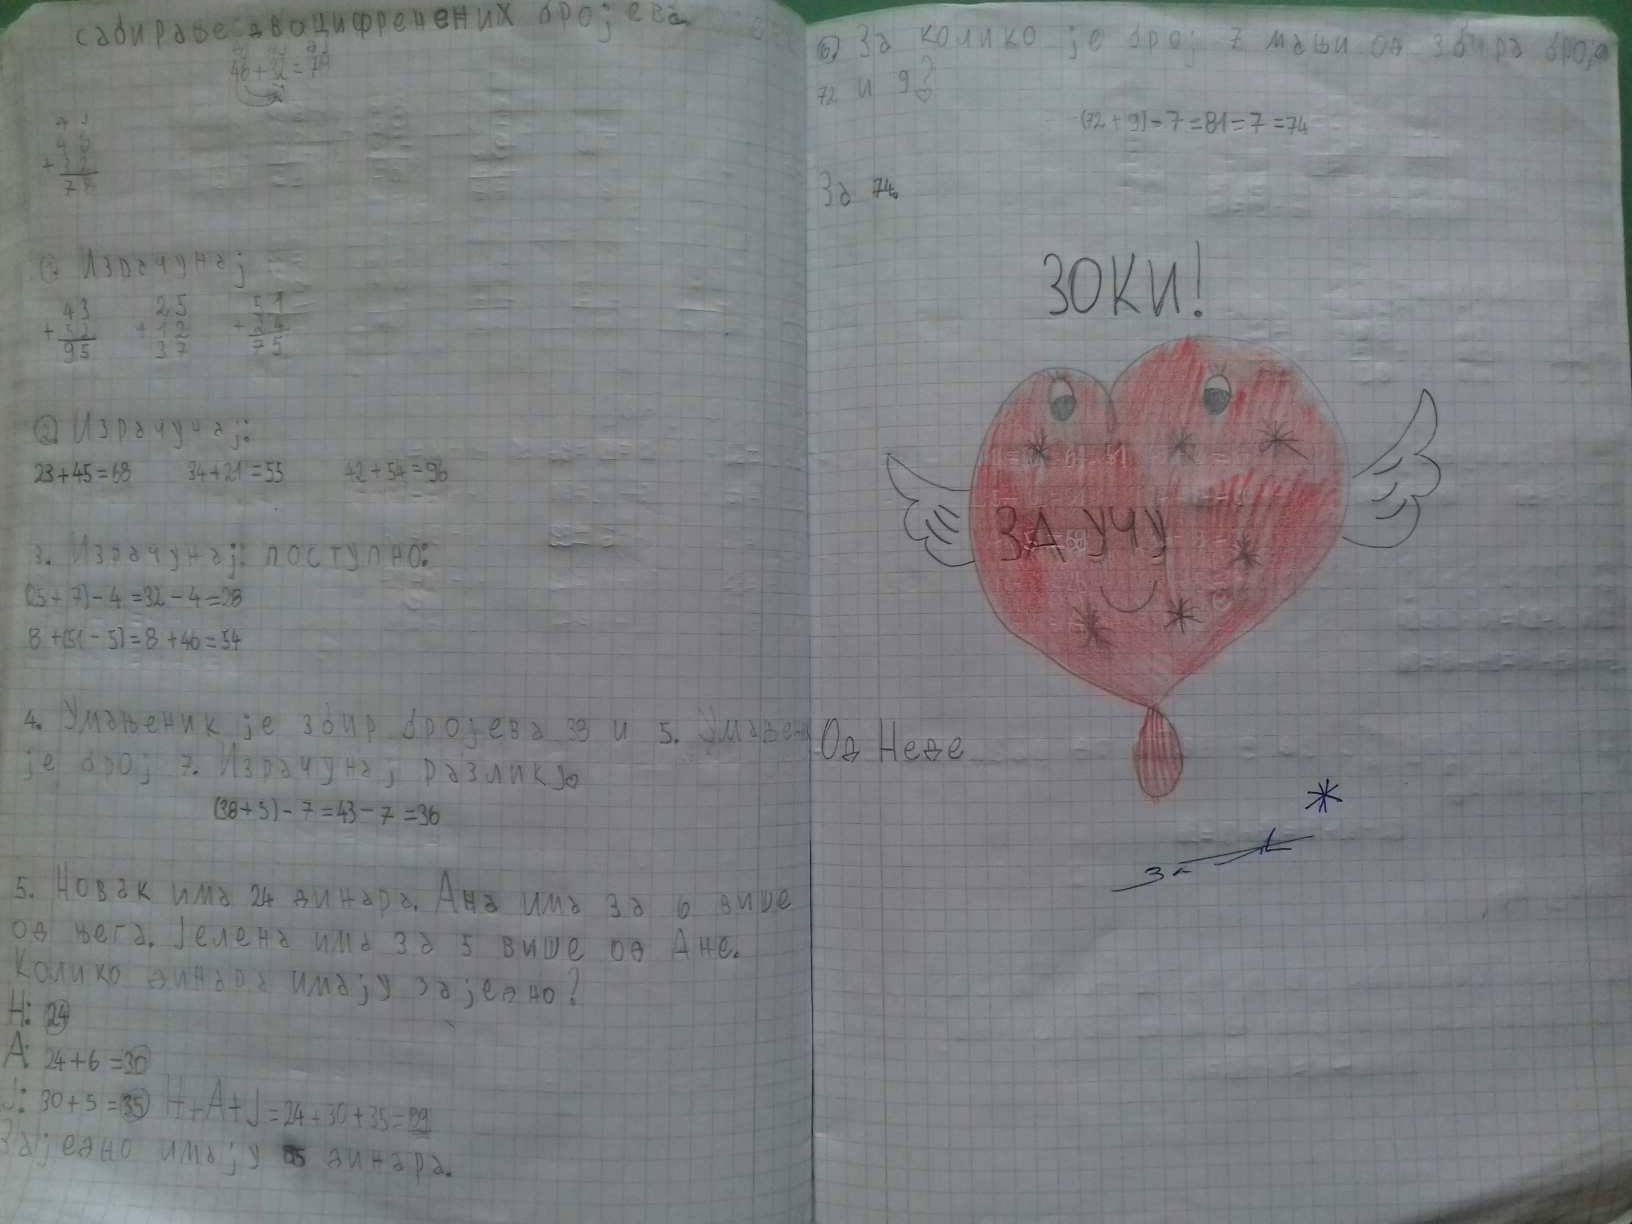 сабирање двоцифрених бројева
46+32=78
+
78
① Израчунај
43 25 51
+52 +12 +24
95 37 75
② Израчунај:
23+45=68 34+21=55 42+54=96
3. Израчунај: поступно:
(25+7)-4=32-4=28
8+(51-5)=8+46=54
4. Умањеник је збир бројева 38 и 5.
је број 7. Израчунај разлику.
(38+5)-7=43-7=36
5. Новак има 24 динара. Ана има за 6 више
од њега. Јелена има за 5 више од Ане.
Колико динара имају заједно?
Н: 24
А: 24+6=30
Ј: 30+5=35 Н+А+Ј=24+30+35=89
Заједно имају динара.
6) За колико је број 7 мањи од збира броја
72 и 9?
(72+9)-7=81=7=74
За 74.
ЗОКИ!
ЗА УЧУ
Од Неде